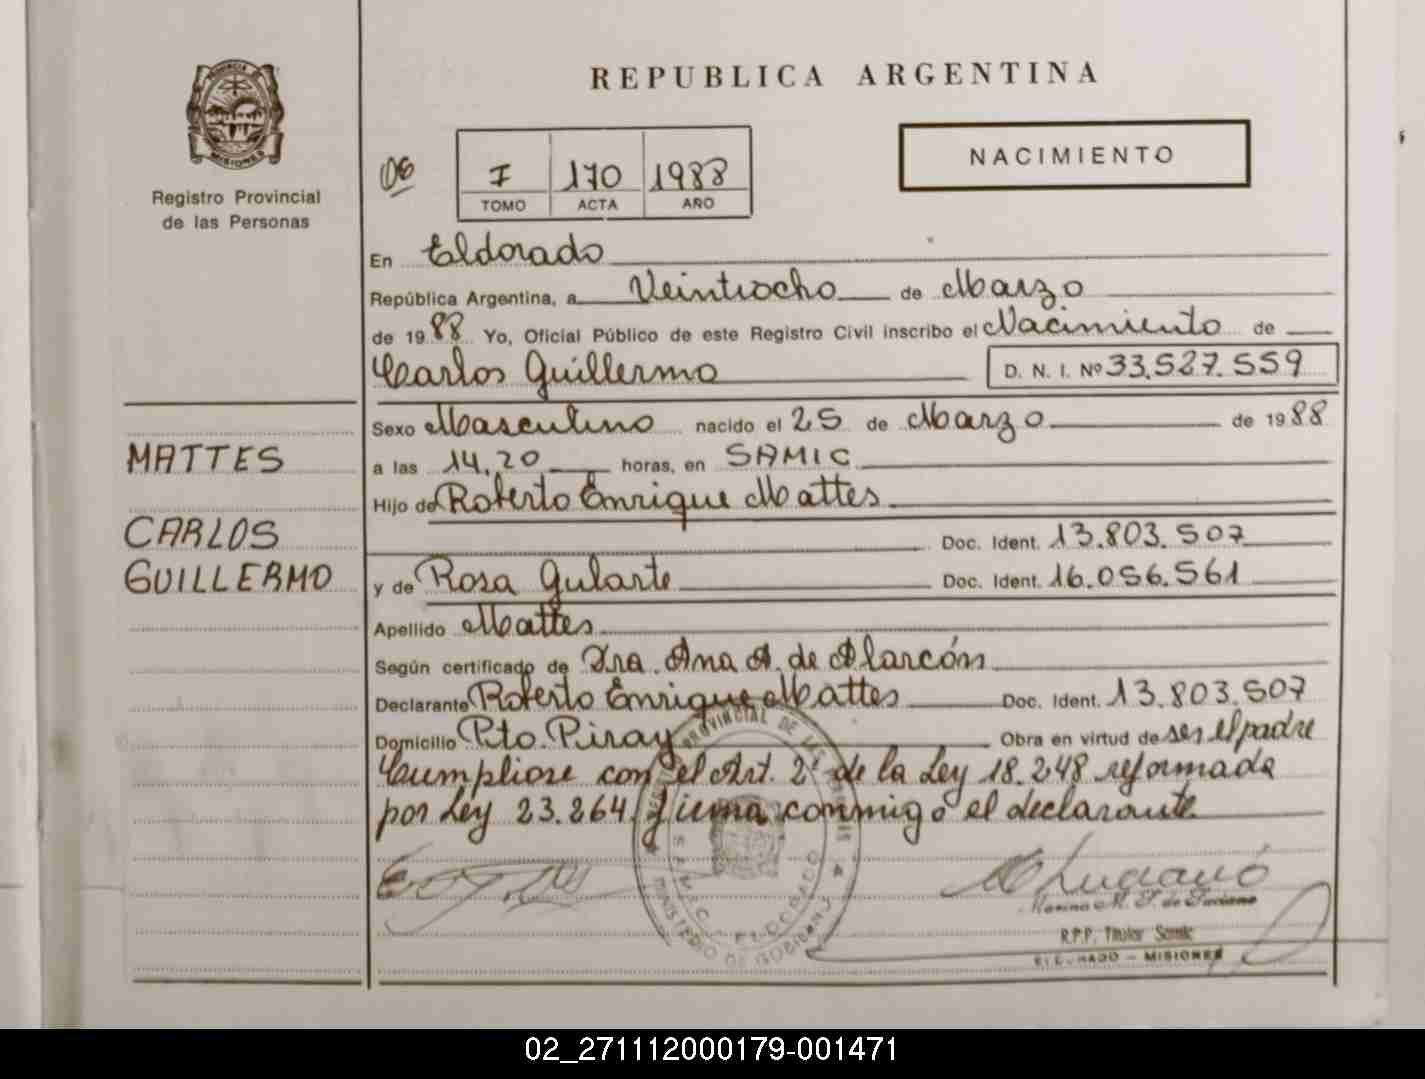 REPUBLICA ARGENTINA
PROVINCIA DE
MISIONES
Registro Provincial
de las Personas
NACIMIENTO
I 170 1988
TOMO ACTA AÑO
En Eldorado
República Argentina, a Veintiocho de Marzo
de 1988 Yo, Oficial Público de este Registro Civil inscribo el Nacimiento de
Carlos Guillermo D. N. I. Nº 33.527.559
Sexo Masculino nacido el 25 de Marzo de 1988
MATTES
a las 14,20 horas, en SAMIC
Hijo de Roberto Enrique Mattes
CARLOS
Doc. Ident. 13.803.507
GUILLERMO
y de Rosa Gularte Doc. Ident. 16.056.561
Apellido Mattes
Según certificado de Dra. Ana A. de Alarcón
Declarante Roberto Enrique Mattes Doc. Ident. 13.803.507
Domicilio Pto. Piray Obra en virtud de ser el padre
Cumpliose con el Art. 2º de la Ley 18.248 reformada
por Ley 23.264. firma conmigo el declarante
PROVINCIAL DE LAS
SAMIC ELDORADO
MINISTERIO DE GOBIERNO
Marina M. F. de Luciano
R.P.P. Titular Samic
ELDORADO - MISIONES
02_271112000179-001471